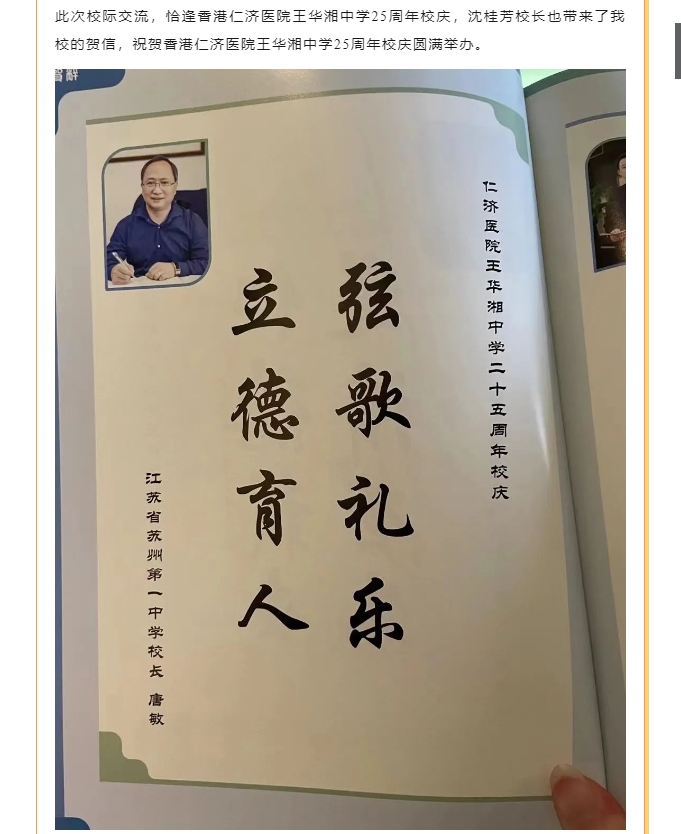 此次校际交流，恰逢香港仁济医院王华湘中学25周年校庆，沈桂芳校长也带来了我
校的贺信，祝贺香港仁济医院王华湘中学25周年校庆圆满举办。
仁济医院王华湘中学二十五周年校庆
弦歌礼乐
立德育人
江苏省苏州第一中学校长 唐敏